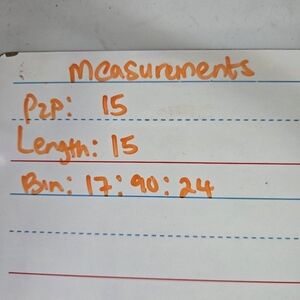 Measurments
P2P: 15
Length: 15
Bin: 17:90:24